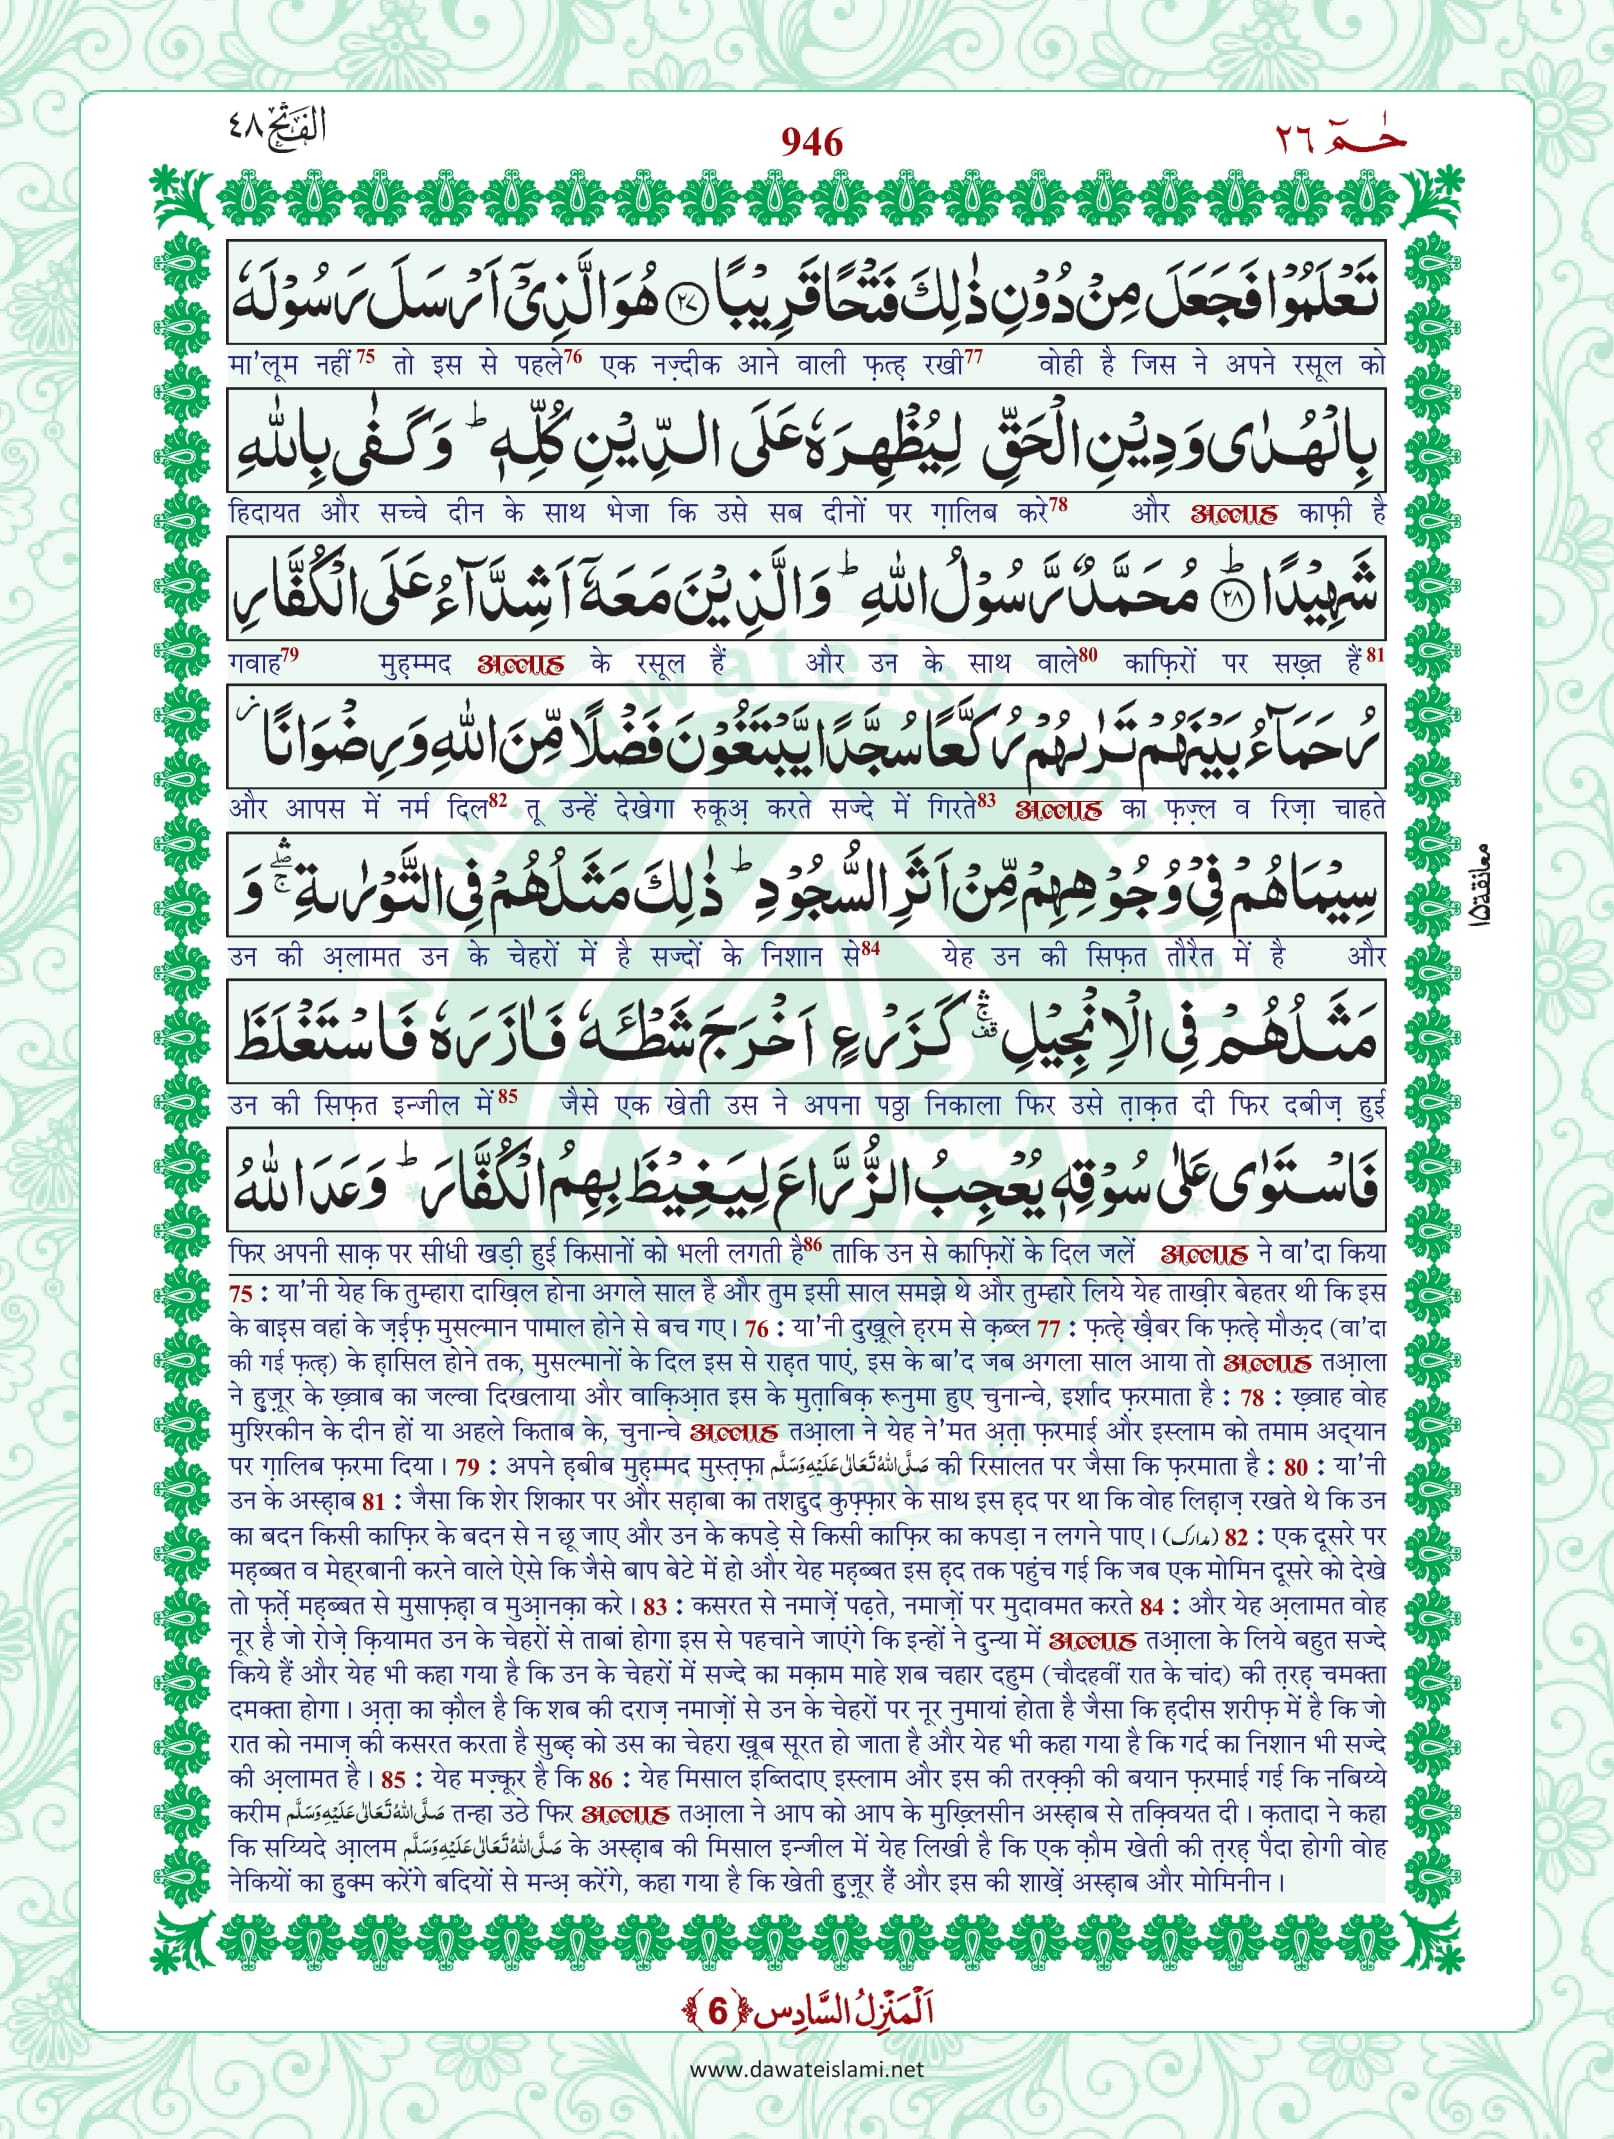 حٰمٓ ٢٦
946
الفَتْح ٤٨
تَعْلَمُوْا فَجَعَلَ مِنْ دُوْنِ ذٰلِكَ فَتْحًا قَرِیْبًا ﴿٢٧﴾ هُوَ الَّذِیْۤ اَرْسَلَ رَسُوْلَهٗ
मा'लूम नहीं 75 तो इस से पहले76 एक नज़्दीक आने वाली फ़त्ह़ रखी77 वोही है जिस ने अपने रसूल को
بِالْهُدٰى وَ دِیْنِ الْحَقِّ لِیُظْهِرَهٗ عَلَى الدِّیْنِ كُلِّهٖ ؕ وَ كَفٰى بِاللّٰهِ
हिदायत और सच्चे दीन के साथ भेजा कि उसे सब दीनों पर ग़ालिब करे78 और अल्लाह काफ़ी है
شَهِیْدًا ﴿٢٨﴾ؕ مُحَمَّدٌ رَّسُوْلُ اللّٰهِ ؕ وَ الَّذِیْنَ مَعَهٗۤ اَشِدَّآءُ عَلَى الْكُفَّارِ
गवाह79 मुह़म्मद अल्लाह के रसूल हैं और उन के साथ वाले80 काफ़िरों पर सख़्त हैं81
رُحَمَآءُ بَیْنَهُمْ تَرٰىهُمْ رُكَّعًا سُجَّدًا یَّبْتَغُوْنَ فَضْلًا مِّنَ اللّٰهِ وَ رِضْوَانًا ٘
और आपस में नर्म दिल82 तू उन्हें देखेगा रुकूअ़ करते सज्दे में गिरते83 अल्लाह का फ़ज़्ल व रिज़ा चाहते
سِیْمَاهُمْ فِیْ وُجُوْهِهِمْ مِّنْ اَثَرِ السُّجُوْدِ ؕ ذٰلِكَ مَثَلُهُمْ فِی التَّوْرٰىةِ ۛۖۚ وَ
معانقة ١٥
उन की अ़लामत उन के चेहरों में है सज्दों के निशान से84 येह उन की सिफ़त तौरैत में है और
مَثَلُهُمْ فِی الْاِنْجِیْلِ ۛ۫ۚ كَزَرْعٍ اَخْرَجَ شَطْـَٔهٗ فَاٰزَرَهٗ فَاسْتَغْلَظَ
उन की सिफ़त इन्जील में85 जैसे एक खेती उस ने अपना पठ्ठा निकाला फिर उसे त़ाक़त दी फिर दबीज़ हुई
فَاسْتَوٰى عَلٰى سُوْقِهٖ یُعْجِبُ الزُّرَّاعَ لِیَغِیْظَ بِهِمُ الْكُفَّارَ ؕ وَعَدَ اللّٰهُ
फिर अपनी साक़ पर सीधी खड़ी हुई किसानों को भली लगती है86 ताकि उन से काफ़िरों के दिल जलें अल्लाह ने वा'दा किया
75 : या'नी येह कि तुम्हारा दाख़िल होना अगले साल है और तुम इसी साल समझे थे और तुम्हारे लिये येह ताख़ीर बेहतर थी कि इस
के बाइस वहां के ज़ईफ़ मुसल्मान पामाल होने से बच गए। 76 : या'नी दुख़ूले ह़रम से क़ब्ल 77 : फ़त्ह़े ख़ैबर कि फ़त्ह़े मौऊ़द (वा'दा
की गई फ़त्ह़) के ह़ासिल होने तक, मुसल्मानों के दिल इस से राह़त पाएं, इस के बा'द जब अगला साल आया तो अल्लाह तआ़ला
ने हुज़ूर के ख़्वाब का जल्वा दिखलाया और वाक़िआ़त इस के मुत़ाबिक़ रूनुमा हुए चुनान्चे, इर्शाद फ़रमाता है : 78 : ख़्वाह वोह
मुश्रिकीन के दीन हों या अहले किताब के, चुनान्चे अल्लाह तआ़ला ने येह ने'मत अ़त़ा फ़रमाई और इस्लाम को तमाम अद्यान
पर ग़ालिब फ़रमा दिया। 79 : अपने ह़बीब मुह़म्मद मुस्त़फ़ा صَلَّى اللّٰهُ تَعَالٰى عَلَيْهِ وَسَلَّم की रिसालत पर जैसा कि फ़रमाता है : 80 : या'नी
उन के अस्ह़ाब 81 : जैसा कि शेर शिकार पर और सह़ाबा का तशद्दुद कुफ़्फ़ार के साथ इस ह़द पर था कि वोह लिह़ाज़ रखते थे कि उन
का बदन किसी काफ़िर के बदन से न छू जाए और उन के कपड़े से किसी काफ़िर का कपड़ा न लगने पाए। (مدارک) 82 : एक दूसरे पर
मह़ब्बत व मेह्रबानी करने वाले ऐसे कि जैसे बाप बेटे में हो और येह मह़ब्बत इस ह़द तक पहुंच गई कि जब एक मोमिन दूसरे को देखे
तो फ़र्त़े मह़ब्बत से मुसाफ़ह़ा व मुआ़नक़ा करे। 83 : कसरत से नमाज़ें पढ़ते, नमाज़ों पर मुदावमत करते 84 : और येह अ़लामत वोह
नूर है जो रोज़े क़ियामत उन के चेहरों से ताबां होगा इस से पहचाने जाएंगे कि इन्हों ने दुन्या में अल्लाह तआ़ला के लिये बहुत सज्दे
किये हैं और येह भी कहा गया है कि उन के चेहरों में सज्दे का मक़ाम माहे शब चहार दहुम (चौदहवीं रात के चांद) की त़रह़ चमक्ता
दमक्ता होगा। अ़त़ा का क़ौल है कि शब की दराज़ नमाज़ों से उन के चेहरों पर नूर नुमायां होता है जैसा कि ह़दीस शरीफ़ में है कि जो
रात को नमाज़ की कसरत करता है सुब्ह़ को उस का चेहरा ख़ूब सूरत हो जाता है और येह भी कहा गया है कि गर्द का निशान भी सज्दे
की अ़लामत है। 85 : येह मज़्कूर है कि 86 : येह मिसाल इब्तिदाए इस्लाम और इस की तरक़्क़ी की बयान फ़रमाई गई कि नबिय्ये
करीम صَلَّى اللّٰهُ تَعَالٰى عَلَيْهِ وَسَلَّم तन्हा उठे फिर अल्लाह तआ़ला ने आप को आप के मुख़्लिसीन अस्ह़ाब से तक़्वियत दी। क़तादा ने कहा
कि सय्यिदे आ़लम صَلَّى اللّٰهُ تَعَالٰى عَلَيْهِ وَسَلَّم के अस्ह़ाब की मिसाल इन्जील में येह लिखी है कि एक क़ौम खेती की त़रह़ पैदा होगी वोह
नेकियों का ह़ुक्म करेंगे बदियों से मन्अ़ करेंगे, कहा गया है कि खेती हुज़ूर हैं और इस की शाख़ें अस्ह़ाब और मोमिनीन।
اَلْمَنْزِلُ السَّادِس ﴿6﴾
www.dawateislami.net